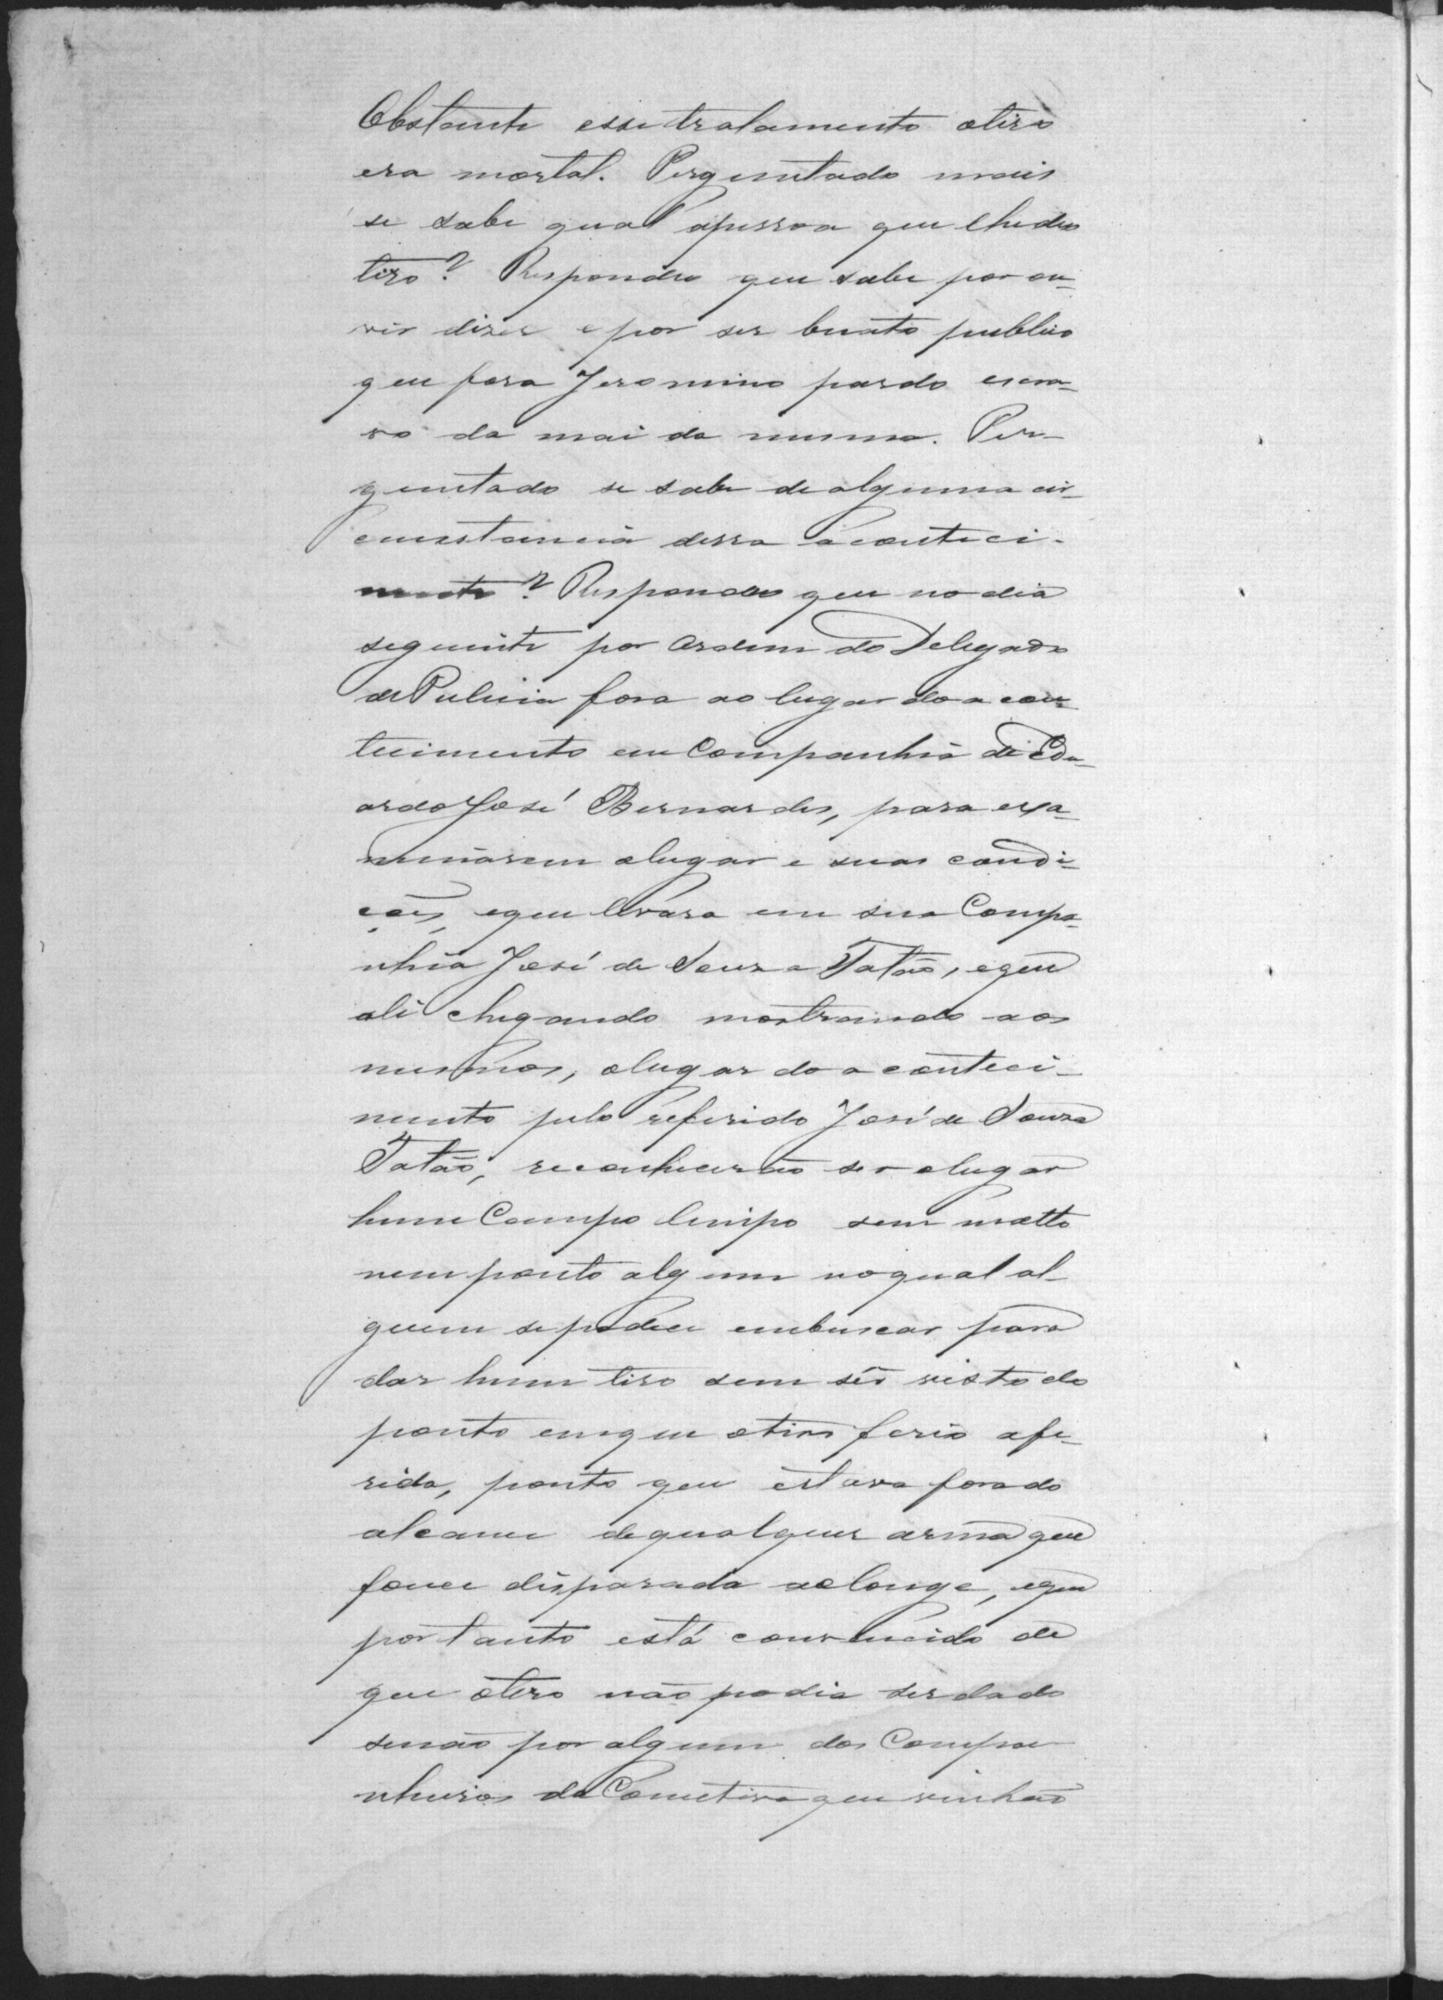 Obstante esse tratamento otiro
era mortal. Perguntado mais
se sabe qual apessoa que lhedeo
tiro? Respondeo que sabe por ou-
vir dizer e por ser buato publico
que fora Jeronimo pardo escra-
vo da mai da mesma. Per-
guntado se sabe dealguma cir-
cunstancia desse aconteci-
mento? Respondeo que no dia
seguinte por ordem do Delegado
de Pulicia fora ao lugar do acon
tecimento em Companhia de Edu-
ardo José Bernardes, para exa-
minarem olugar e suas condi-
ções, eque levara em sua Compa-
nhia José de Souza Tatão, eque
ali chegando mostrando aos
mesmos, olugar do aconteci-
mento pelo referido José de Souza
Tatão, reconhecerão ser olugar
hum Campo limpo sem matto
nem ponto algum noqual al-
guem sepodece embuscar para
dar hum tiro sem ser visto do
ponto emque otiro ferio afe-
rida, ponto que estava fora do
alcance dequalquer arma que
foce disparada aolonge, eque
portanto está convencido de
que otiro não podia serdado
senão por algum dos Compa
nheiros da Cometiva que vinhão